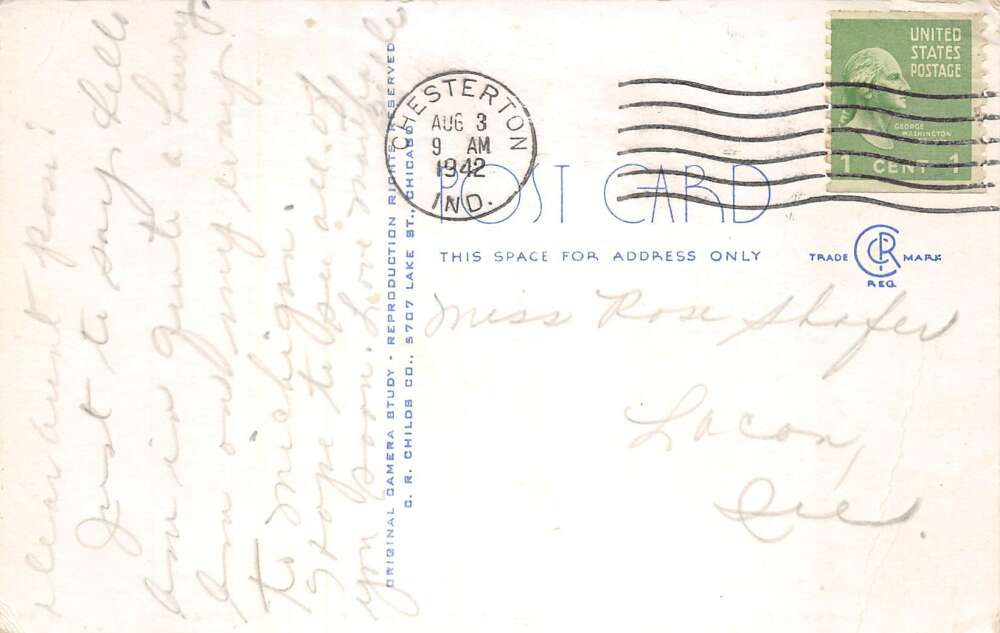 Dear Aunt Rose:
Just to say hello
am in quite a hurry.
Am on my way
to Michigan.
Hope to see all of
you soon. Love
ORIGINAL CAMERA STUDY - REPRODUCTION RIGHTS RESERVED
C. R. CHILDS CO., 5707 LAKE ST., CHICAGO
CHESTERTON
AUG 3
9 AM
1942
IND.
UNITED
STATES
POSTAGE
GEORGE
WASHINGTON
1 CENT 1
POST CARD
THIS SPACE FOR ADDRESS ONLY
TRADE CRC MARK
REG.
Miss Rose Shafer
Lacon,
Ill.